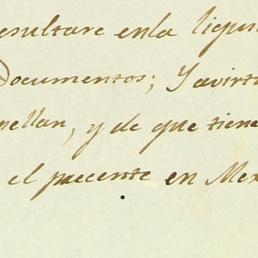 resultare enla liqui
Documentos; y avirt
mellan, y de que tiene
el precente en Mex